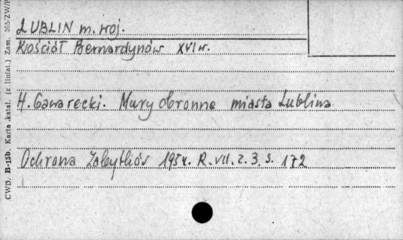 LUBLIN m. woj.
Kościół Bernardynów XVI w.
H. Gawarecki. Mury obronne miasta Lublina
Ochrona Zabytków 1954. R. VII. z. 3. s. 172
CWD. B-15b. Karta katal. (z liniat.) Zam.